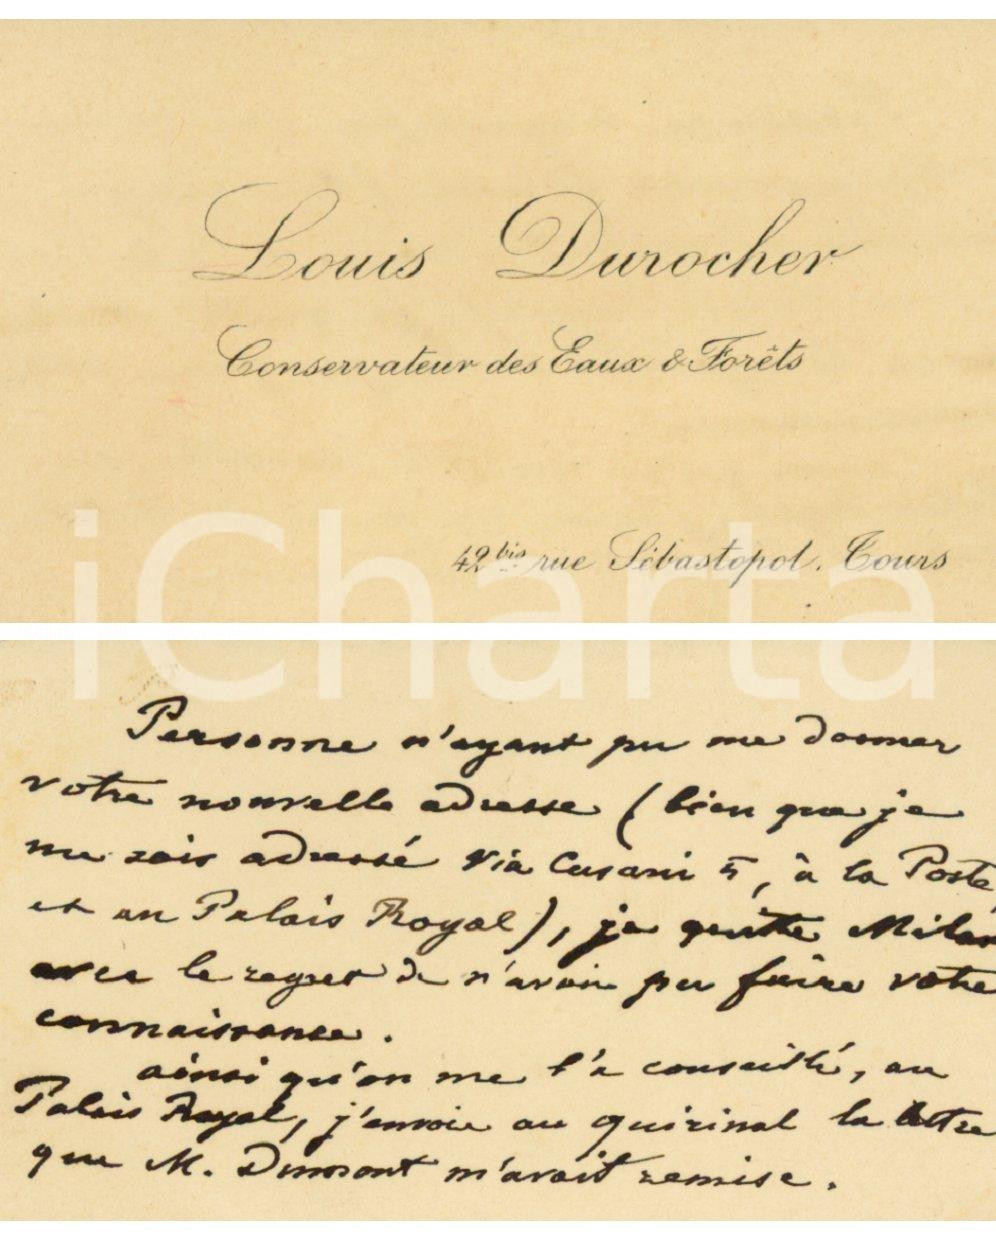 Louis Durocher
Conservateur des Eaux & Forêts
42 bis rue Sébastopol. Tours
iCharta
Personne n'ayant pu me donner
votre nouvelle adresse (bien que je
me sois adressé Via Cusani 5, à la Poste
et au Palais Royal), je quitte Milan
avec le regret de n'avoir pu faire votre
connaissance.
ainsi qu'on me l'a conseillé, au
Palais Royal, j'envoie au Quirinal la lettre
que M. Dumont m'avait remise.